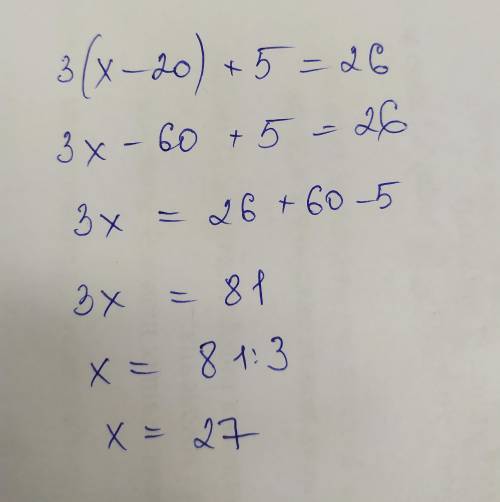 3(x-20) + 5 = 26
3x - 60 + 5 = 26
3x = 26 + 60 - 5
3x = 81
x = 81:3
x = 27